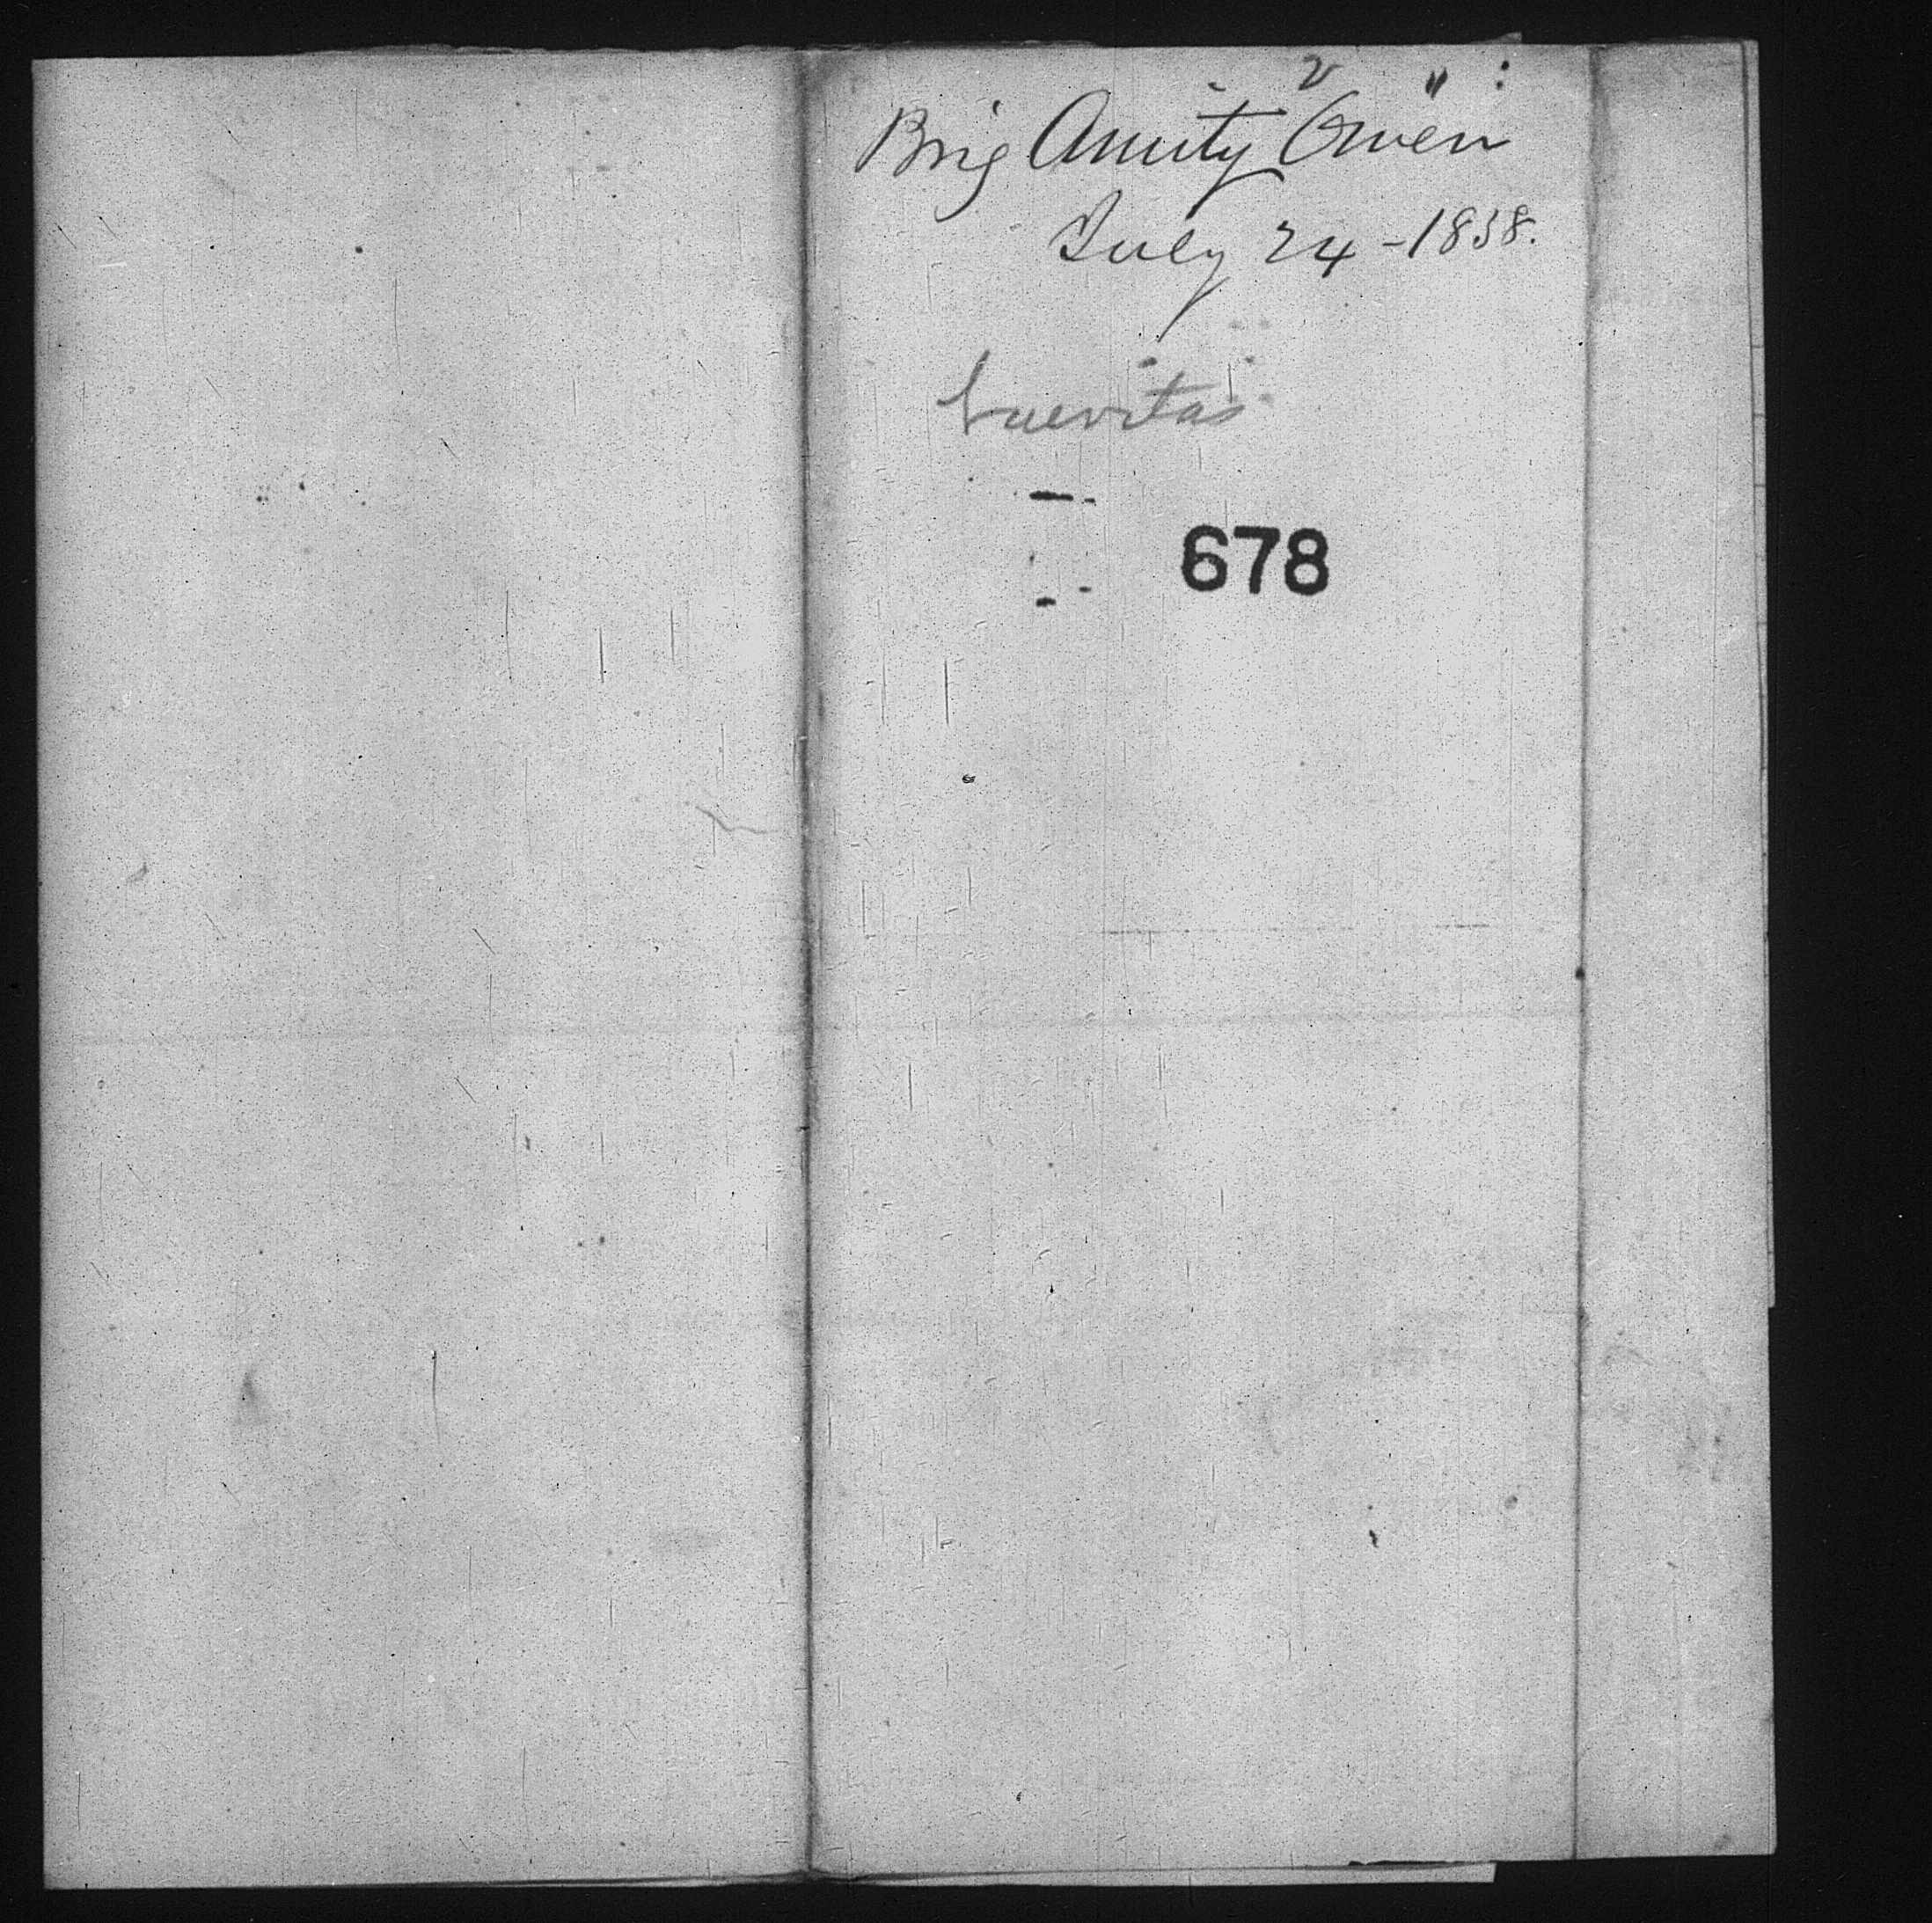 Brig Amity Owen
July 24 - 1838.
Nuevitas
678